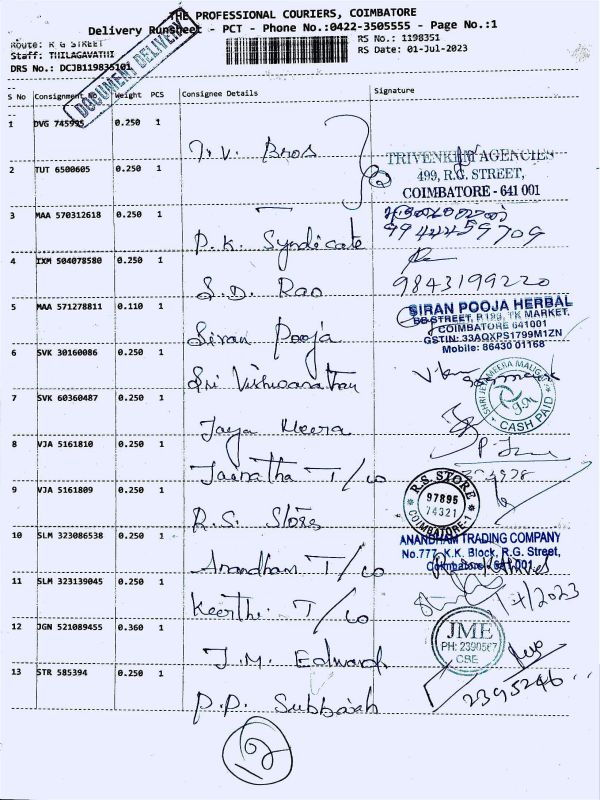 THE PROFESSIONAL COURIERS, COIMBATORE
Delivery Runsheet - PCT - Phone No.:0422-3505555 - Page No.:1
Route: R G STREET
RS No.: 1198351
Staff: THILAGAVATHI
RS Date: 01-Jul-2023
DRS No.: DCJB119835101
DOCUMENT DELIVERY
S No Consignment No Weight PCS Consignee Details Signature
1 DVG 745995 0.250 1
T.V. Bros
TRIVENKIM AGENCIES
2 TUT 6500605 0.250 1
499, R.G. STREET,
COIMBATORE - 641 001
3 MAA 570312618 0.250 1
P.K. Syndicate
9944459709
4 IXM 504078580 0.250 1
S.D. Rao
9843199220
5 MAA 571278811 0.110 1
Siran Pooja
SIRAN POOJA HERBAL
STREET, R TK MARKET,
COIMBATORE 641001
GSTIN: 33AQXPS1799M1ZN
Mobile: 86430 01168
6 SVK 30160086 0.250 1
Sri Vishwanathan
7 SVK 60360487 0.250 1
Jaya Meera
SHRI JEYAMEERA
CASH PAID
8 VJA 5161810 0.250 1
Jainatha T/co
9 VJA 5161809 0.250 1
R.S. Stores
R.S. STORE
97895
74321
COIMBATORE-1
10 SLM 323086538 0.250 1
Anandham T/co
ANANDHAM TRADING COMPANY
No.777, K.K. Block, R.G. Street,
Coimbatore - 641 001.
11 SLM 323139045 0.250 1
Keerthi T/co
1/7/2023
12 JGN 521089455 0.360 1
J.M. Edward
JME
PH: 2390567
CBE
13 STR 585394 0.250 1
P.P. Subbaiah
2395246